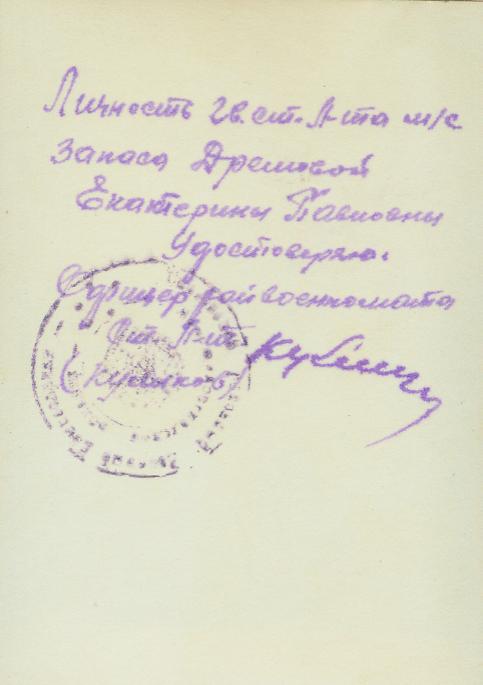 Личность гв. ст. Л-та м/с
Запаса Дремовой
Екатерины Павловны
Удостоверяю.
Офицер райвоенкомата
Ст. Л-т
(Куликов)